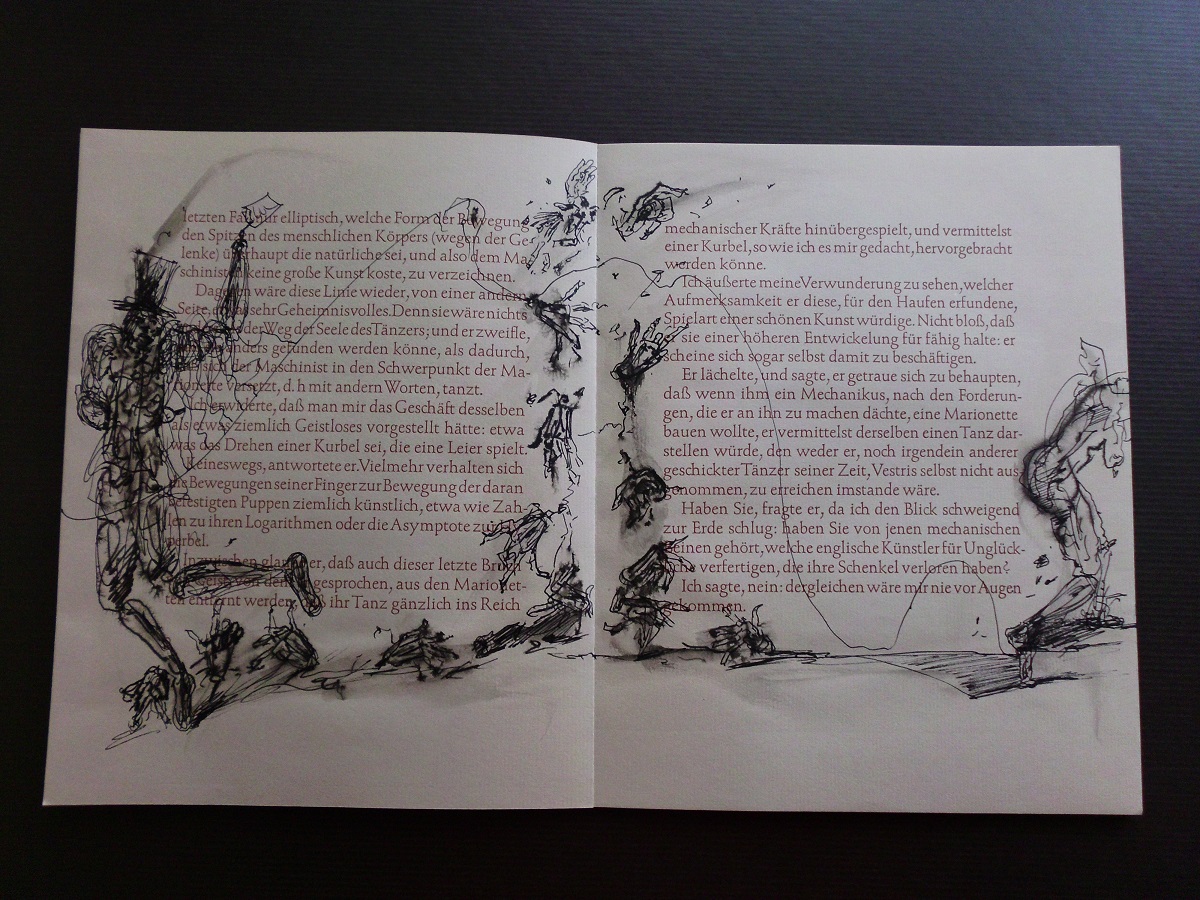 letzten Fall nur elliptisch, welche Form der Bewegung
den Spitzen des menschlichen Körpers (wegen der Ge-
lenke) überhaupt die natürliche sei, und also dem Ma-
schinisten keine große Kunst koste, zu verzeichnen.
Dagegen wäre diese Linie wieder, von einer andern
Seite, etwas sehr Geheimnisvolles. Denn sie wäre nichts
der Weg der Seele des Tänzers; und er zweifle,
anders gefunden werden könne, als dadurch,
daß sich der Maschinist in den Schwerpunkt der Ma-
rionette versetzt, d. h mit andern Worten, tanzt.
Ich erwiderte, daß man mir das Geschäft desselben
als etwas ziemlich Geistloses vorgestellt hätte: etwa
was das Drehen einer Kurbel sei, die eine Leier spielt.
Keineswegs, antwortete er. Vielmehr verhalten sich
die Bewegungen seiner Finger zur Bewegung der daran
befestigten Puppen ziemlich künstlich, etwa wie Zah-
len zu ihren Logarithmen oder die Asymptote zur Hy-
perbel.
Inzwischen glaube er, daß auch dieser letzte Bruch
von dem gesprochen, aus den Marionet-
ten entfernt werden, daß ihr Tanz gänzlich ins Reich
mechanischer Kräfte hinübergespielt, und vermittelst
einer Kurbel, so wie ich es mir gedacht, hervorgebracht
werden könne.
Ich äußerte meine Verwunderung zu sehen, welcher
Aufmerksamkeit er diese, für den Haufen erfundene,
Spielart einer schönen Kunst würdige. Nicht bloß, daß
er sie einer höheren Entwickelung für fähig halte: er
scheine sich sogar selbst damit zu beschäftigen.
Er lächelte, und sagte, er getraue sich zu behaupten,
daß wenn ihm ein Mechanikus, nach den Forderun-
gen, die er an ihn zu machen dächte, eine Marionette
bauen wollte, er vermittelst derselben einen Tanz dar-
stellen würde, den weder er, noch irgendein anderer
geschickter Tänzer seiner Zeit, Vestris selbst nicht aus
genommen, zu erreichen imstande wäre.
Haben Sie, fragte er, da ich den Blick schweigend
zur Erde schlug: haben Sie von jenen mechanischen
Beinen gehört, welche englische Künstler für Unglück-
liche verfertigen, die ihre Schenkel verloren haben?
Ich sagte, nein: dergleichen wäre mir nie vor Augen
gekommen.